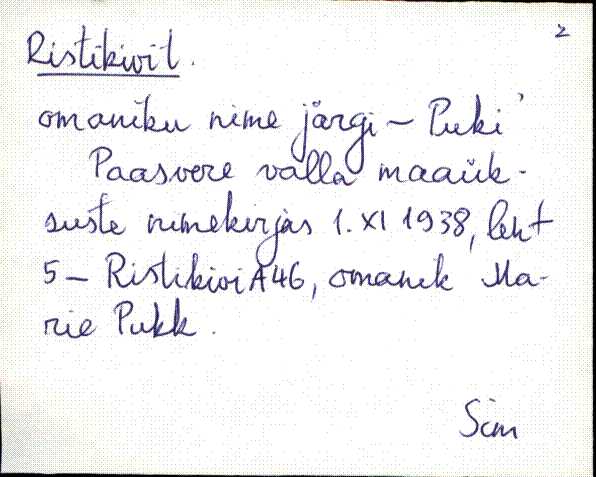 2
Ristikivit.
omaniku nime järgi – Puki'
Paasvere valla maaük-
suste nimekirjas 1. XI 1938, leht
5 – Ristikivi A46, omanik Ma-
rie Pukk.
Sim